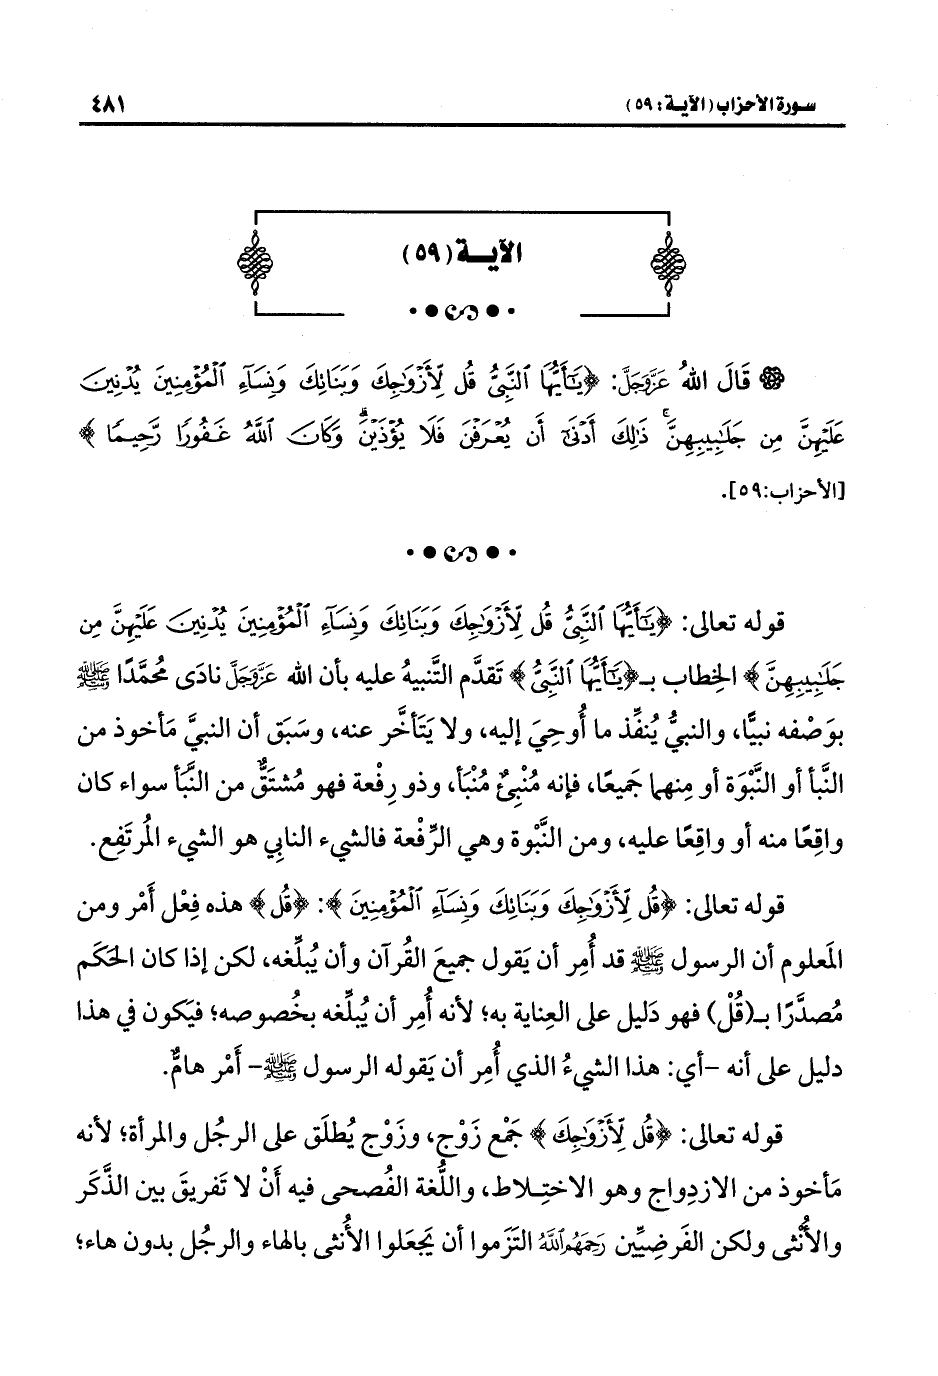 سورة الأحزاب (الآية: ٥٩) ٤٨١
الآية (٥٩)
قَالَ اللهُ عَزَّوَجَلَّ: ﴿يَٰٓأَيُّهَا ٱلنَّبِيُّ قُل لِّأَزْوَٰجِكَ وَبَنَاتِكَ وَنِسَآءِ ٱلْمُؤْمِنِينَ يُدْنِينَ
عَلَيْهِنَّ مِن جَلَٰبِيبِهِنَّ ۚ ذَٰلِكَ أَدْنَىٰٓ أَن يُعْرَفْنَ فَلَا يُؤْذَيْنَ ۗ وَكَانَ ٱللَّهُ غَفُورًا رَّحِيمًا﴾
[الأحزاب:٥٩].
قوله تعالى: ﴿يَٰٓأَيُّهَا ٱلنَّبِيُّ قُل لِّأَزْوَٰجِكَ وَبَنَاتِكَ وَنِسَآءِ ٱلْمُؤْمِنِينَ يُدْنِينَ عَلَيْهِنَّ مِن
جَلَٰبِيبِهِنَّ﴾ الخِطاب بـ﴿يَٰٓأَيُّهَا ٱلنَّبِيُّ﴾ تَقدَّم التَّنبيهُ عليه بأن الله عَزَّوَجَلَّ نادَى مُحمَّدًا ﷺ
بوَصْفه نبيًّا، والنبيُّ يُنفِّذ ما أُوحِيَ إليه، ولا يَتَأخَّر عنه، وسَبَق أن النبيَّ مَأخوذ من
النَّبأ أو النَّبْوَة أو مِنهما جَميعًا، فإنه مُنْبِئٌ مُنْبَأ، وذو رِفْعة فهو مُشتَقٌّ من النَّبَأ سواء كان
واقِعًا منه أو واقِعًا عليه، ومن النَّبْوة وهي الرِّفْعة فالشيء النابِي هو الشيء المُرتَفِع.
قوله تعالى: ﴿قُل لِّأَزْوَٰجِكَ وَبَنَاتِكَ وَنِسَآءِ ٱلْمُؤْمِنِينَ﴾: ﴿قُل﴾ هذه فِعْل أَمْر ومن
المَعلوم أن الرسول ﷺ قد أُمِر أن يَقول جميعَ القُرآن وأن يُبلِّغه، لكن إذا كان الحَكَم
مُصدَّرًا بـ(قُلْ) فهو دَليل على العِناية به؛ لأنه أُمِر أن يُبلِّغه بخُصوصه؛ فيَكون في هذا
دليل على أنه -أي: هذا الشيءُ الذي أُمِر أن يَقوله الرسول ﷺ- أَمْر هامٌّ.
قوله تعالى: ﴿قُل لِّأَزْوَٰجِكَ﴾ جَمْع زَوْج، وزَوْج يُطلَق على الرجُل والمرأة؛ لأنه
مَأخوذ من الازدِواج وهو الاختِلاط، واللُّغة الفُصحى فيه أَنْ لا تَفريقَ بين الذَّكَر
والأُنْثى ولكن الفَرضِيِّين رَحِمَهُمُاللَّهُ التَزَموا أن يَجعَلوا الأُنثى بالهاء والرجُل بدون هاء؛